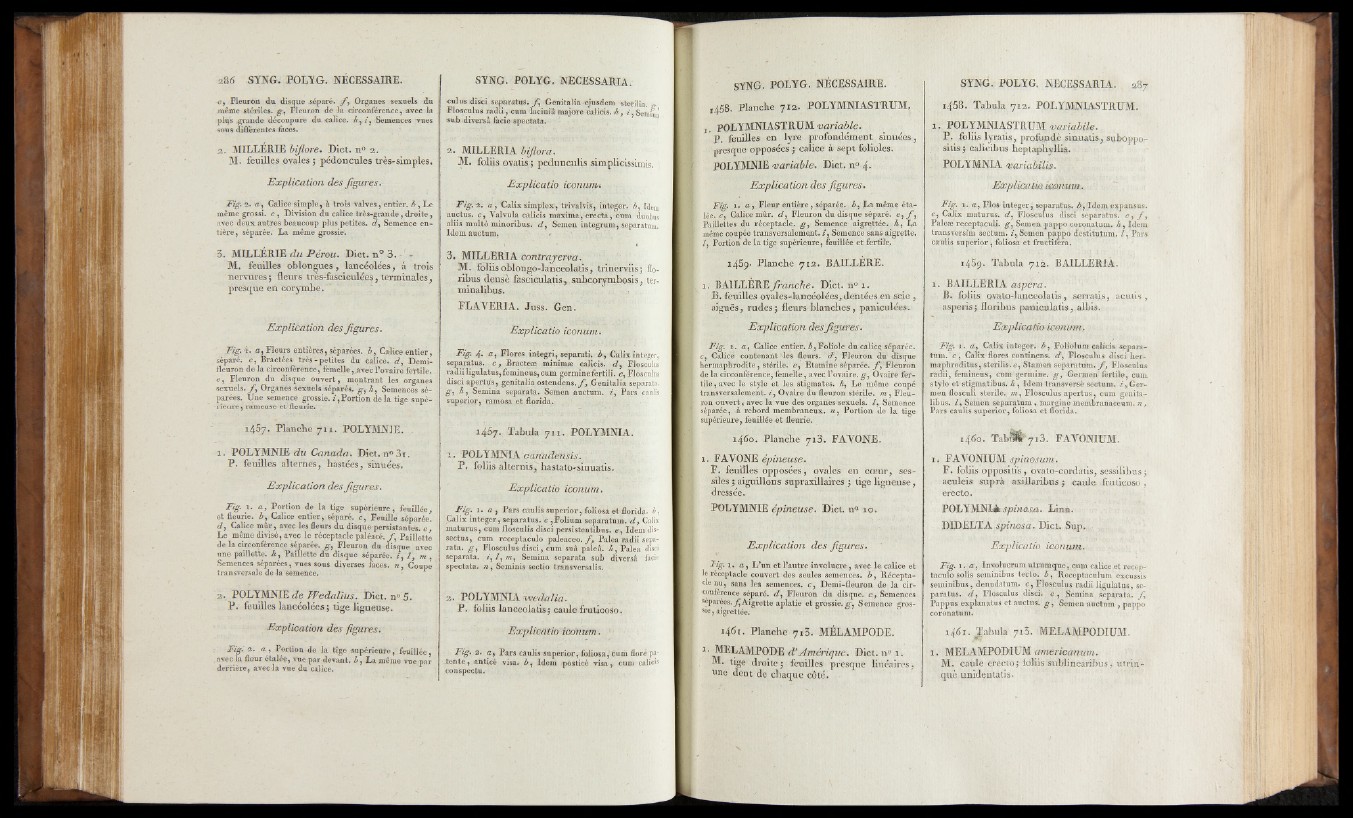 286 SYNG. POLYG. NÉCESSAIRE.
e, Fleuron du disque séparé. f, Organes sexuels du
même stériles. g, Fleuron de la circonférence, avec la
plus grande découpure du calice. h, i, Semences vues
sous différentes faces.
2. MILLÉRIE biflore. Dict. n° 2.
M. feuilles ovales ; pédoncules très-simples.
Explication des figures.
Fig. 2. a, Calice simple, à trois valves, entier. b, Le
même grossi. c, Division du calice très-grande, droite,
avec deux autres beaucoup plus petites. d, Semence en-
tière, séparée. La même grossie.
3. MILLÉRIE du Pérou. Dict. n° 3.
M. feuilles oblongues, lancéolées, à trois
nervures ; fleurs très-fasciculées, terminales,
presque en corymbe.
Explication des figures.
Fig. 1. a, Fleurs entières, séparées. b, Calice entier,
séparé. c, Bractées très-petites du calice. d, Demi-
fleuron de la circonférence, femelle, avec l'ovaire fertile.
e, Fleuron du disque ouvert, montrant les organes
sexuels. f, Organes sexuels séparés. g, h, Semences sé-
parées. Une semence grossie. i, Portion de la tige supé-
rieure, rameuse et fleurie.
1457. Planche 711. POLYMNIE.
1. POLYMNIE du Canada. Dict. n° 3r.
P. feuilles alternes, hastées, sinuées.
Explication des figures.
Fig. 1. a, Portion de la tige supérieure, feuillée,
et fleurie. b, Calice entier, séparé. c, Feuille séparée.
d, Calice mûr, avec les fleurs du disque persistantes. e,
Le même divisé, avec le réceptacle paléacé. f, Paillette
de la circonférence séparée. g, Fleuron du disque avec
une paillette. h, Paillette du disque séparée. i, l, m,
Semences séparées, vues sous diverses faces. n, Coupe
transversale de la semence.
2. POLYMNIE de Wedalius. Dict. n° 5.
P. feuilles lancéolées ; tige ligneuse.
Explication des figures.
Fig. 2. a, Portion de la tige supérieure, feuillée,
avec la fleur étalée, vue par devant. b, La même vue par
derrière, avec la vue du calice.
SYNG. POLYG. NECESSARIA.
culus disci separatus. f, Genitalia ejusdem sterilia. g,
Flosculus radii, cum laciniâ majore calicis. h, i, Semina
sub diversâ facie spectata.
2. MILLERIA biflora.
M. foliis ovatis ; pedunculis simplicissimis.
Explicatio iconum.
Fig. 2. a, Calix simplex, trivalvis, integer. b, Idem
auctus. c, Valvula calicis maxima, erecta, cum duabus
aliis multò minoribus. d, Semen integrum, separatum.
Idem auctum.
3. MILLERIA contrayerva.
M. foliis oblongo-lanceolatis, trinerviis ; flo-
ribus densè fasciculatis, subcorymbosis, ter-
minalibus.
FLAVERIA. Juss. Gen.
Explicatio iconum.
Fig. 4. a, Flores integri, separati. b, Calix integer,
separatus. c, Bracteæ minimæ calicis. d, Flosculus
radii ligulatus, femineus, cum germine fertili. e, Flosculus
disci apertus, genitalia ostendens. f, Genitalia separata.
g, h, Semina separata. Semen auctum. i, Pars caulis
superior, ramosa et florida.
1457. Tabula 711. POLYMNIA.
1. POLYMNIA canadensis.
P. foliis alternis, hastato-sinuatis.
Explicatio iconum.
Fig. 1. a, Pars caulis superior, foliosa et florida. b,
Calix integer, separatus. c, Folium separatum. d, Calix
maturus, cum flosculis disci persistentibus. e, Idem dis-
sectus, cum receptaculo paleaceo. f, Palea radii sepa-
rata. g, Flosculus disci, cum suâ paleâ. h, Palea disci
separata. i, l, m, Semina separata sub diversâ facie
spectata. n, Seminis sectio transversalis.
2. POLYMNIA wedalia.
P. foliis lanceolatis ; caule fruticoso.
Explicatio iconum.
Fig. 2. a, Pars caulis superior, foliosa, cum flore pa-
tente, anticè visa. b, Idem posticè visa, cum calicis
conspectu.
SYNG. POLYG. NÉCESSAIRE.
1458. Planche 712. POLYMNIASTRUM.
1. POLYMNIASTRUM variable.
P. feuilles en lyre profondément sinuées,
presque opposées ; calice à sept folioles.
POLYMNIE variable. Dict. n° 4.
Explication des figures.
Fig. 1. a, Fleur entière, séparée. b, La même éta-
lée. c, Calice mûr. d, Fleuron du disque séparé. e, f,
Paillettes du réceptacle. g, Semence aigrettée. h, La
même coupée transversalement. i, Semence sans aigrette.
l, Portion de la tige supérieure, feuillée et fertile.
1459. Planche 712. BAILLÈRE.
1. BAILLÈRE franche. Dict. n° 1.
B. feuilles ovales-lancéolées, dentées en scie,
aiguës, rudes ; fleurs blanches, paniculées.
Explication des figures.
Fig. 1. a, Calice entier. b, Foliole du calice séparée.
c, Calice contenant les fleurs. d, Fleuron du disque
hermaphrodite, stérile. e, Étamine séparée. f, Fleuron
de la circonférence, femelle, avec l'ovaire. g, Ovaire fer-
tile, avec le style et les stigmates. h, Le même coupé
transversalement. i, Ovaire du fleuron stérile. m, Fleu-
ron ouvert, avec la vue des organes sexuels. l, Semence
séparée, à rebord membraneux. n, Portion de la tige
supérieure, feuillée et fleurie.
1460. Planche 713. FAVONE.
1. FAVONE épineuse.
F. feuilles opposées, ovales en cœur, ses-
siles ; aiguillons supraxillaires ; tige ligneuse,
dressée.
POLYMNIE épineuse. Dict. n° 10.
Explication des figures.
Fig. 1. a, L'un et l'autre involucre, avec le calice et
le réceptacle couvert des seules semences. b, Récepta-
cle nu, sans les semences. c, Demi-fleuron de la cir-
conférence séparé. d, Fleuron du disque. e, Semences
séparées. f, Aigrette aplatie et grossie. g, Semence gros-
sie, aigrettée.
1461. Planche 713. MÉLAMPODE.
1. MELAMPODE d'Amérique. Dict. n° 1.
M. tige droite ; feuilles presque linéaires,
une dent de chaque côté.
SYNG. POLYG. NECESSARIA. 287
1458. Tabula 712. POLYMNIASTRUM.
1. POLYMNIASTRUM variabile.
P. foliis lyratis, profundè sinuatis, suboppo-
sitis ; calicibus heptaphyllis.
POLYMNIA variabilis.
Explicatio iconum.
Fig. 1. a, Flos integer, separatus. b, Idem expansus.
c, Calix maturus. d, Flosculus disci separatus. e, f,
Paleæ receptaculi. g, Semen pappo coronatum. h, Idem
transversìm sectum. i, Semen pappo destitutum. l, Pars
caulis superior, foliosa et fructifera.
1459. Tabula 712. BAILLERIA.
1. BAILLERIA aspera.
B. foliis ovato-lanceolatis, serratis, acutis,
asperis ; floribus paniculatis, albis.
Explicatio iconum.
Fig. 1. a, Calix integer. b, Foliolum calicis separa-
tum. c, Calix flores continens. d, Flosculus disci her-
maphroditus, sterilis. e, Stamen separatum. f, Flosculus
radii, femineus, cum germine. g, Germen fertile, cum
stylo et stigmatibus. h, Idem transversè sectum. i, Ger-
men flosculi sterile. m, Flosculus apertus, cum genita-
libus. l, Semen separatum, margine membranaceum. n,
Pars caulis superior, foliosa et florida.
1460. Tabula 713. FAVONIUM.
1. FAVONIUM spinosum.
F. foliis oppositis, ovato-cordatis, sessilibus ;
aculeis suprà axillaribus ; caule fruticoso,
erecto.
POLYMNIA spinosa. Linn.
DIDELTA spinosa. Dict. Sup.
Explicatio iconum.
Fig. 1. a, Involucrum utrumque, cum calice et recep-
taculo solis seminibus tecto. b, Receptaculum excussis
seminibus, denudatum. c, Flosculus radii ligulatus, se-
paratus. d, Flosculus disci. e, Semina separata. f,
Pappus explanatus et auctus. g, Semen auctum, pappo
coronatum.
1461. Tabula 713. MELAMPODIUM.
1. MELAMPODIUM americanum.
M. caule erecto ; foliis sublinearibus, utrin-
què unidentatis.